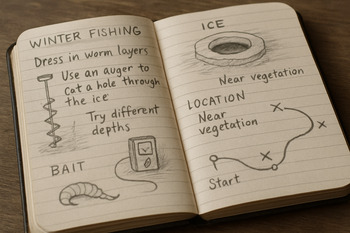 WINTER FISHING
Dress in worm layers
Use an auger to
cot a hole through
the ice
Try different
depths
BAIT
ICE
Near vegetation
LOCATION
Near
vegetation
Start